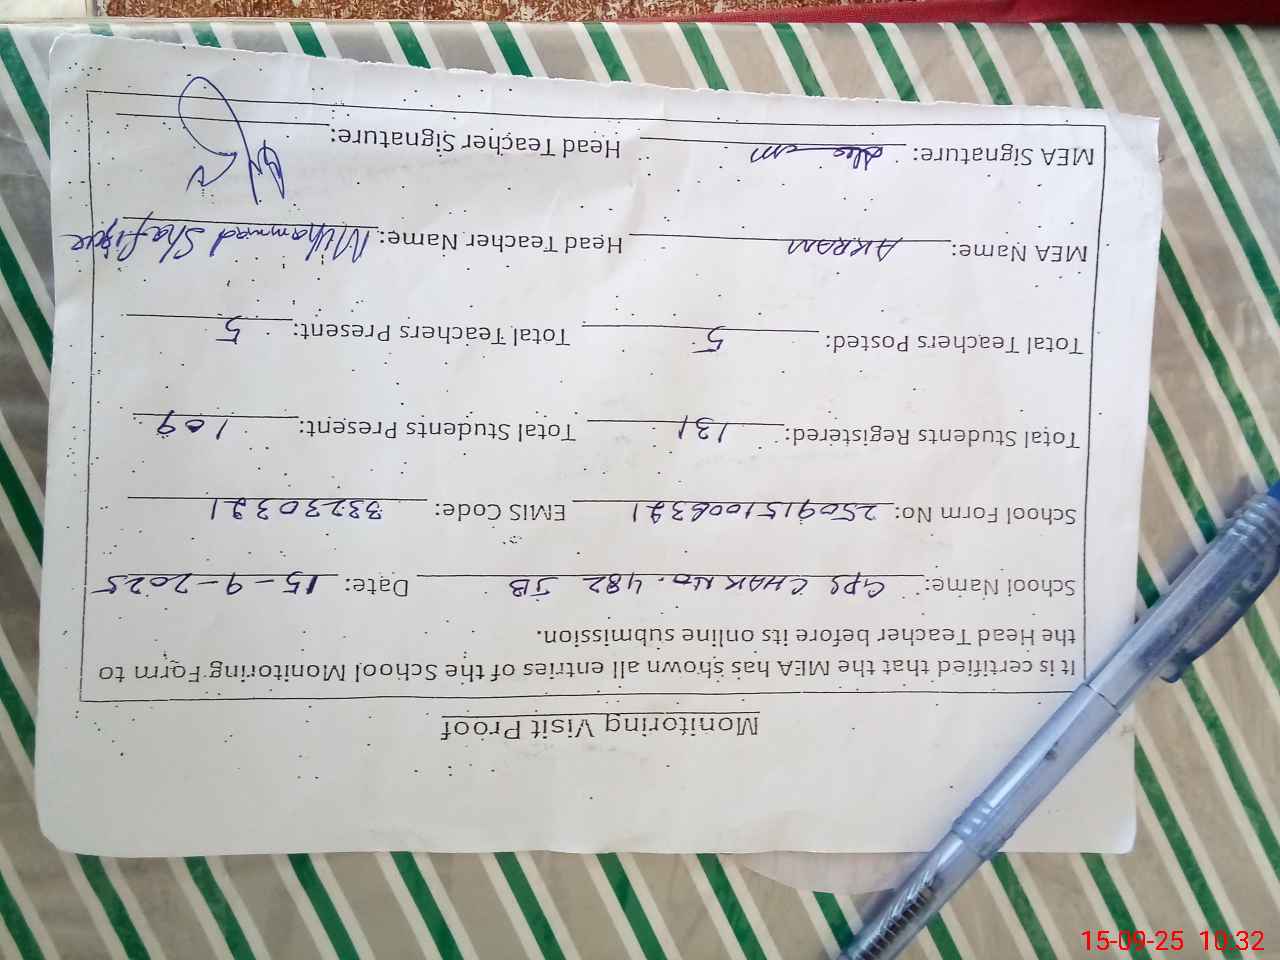 Monitoring Visit Proof
It is certified that the MEA has shown all entries of the School Monitoring Form to
the Head Teacher before its online submission.
School Name: GPS CHAK NO. 482 JB Date: 15-9-2025
School Form No: EMIS Code: 33230321
Total Students Registered: 131 Total Students Present: 109
Total Teachers Posted: 5 Total Teachers Present: 5
MEA Name: AKRAM Head Teacher Name: Muhammad Shafique
MEA Signature: Head Teacher Signature:
15-09-25 10:32